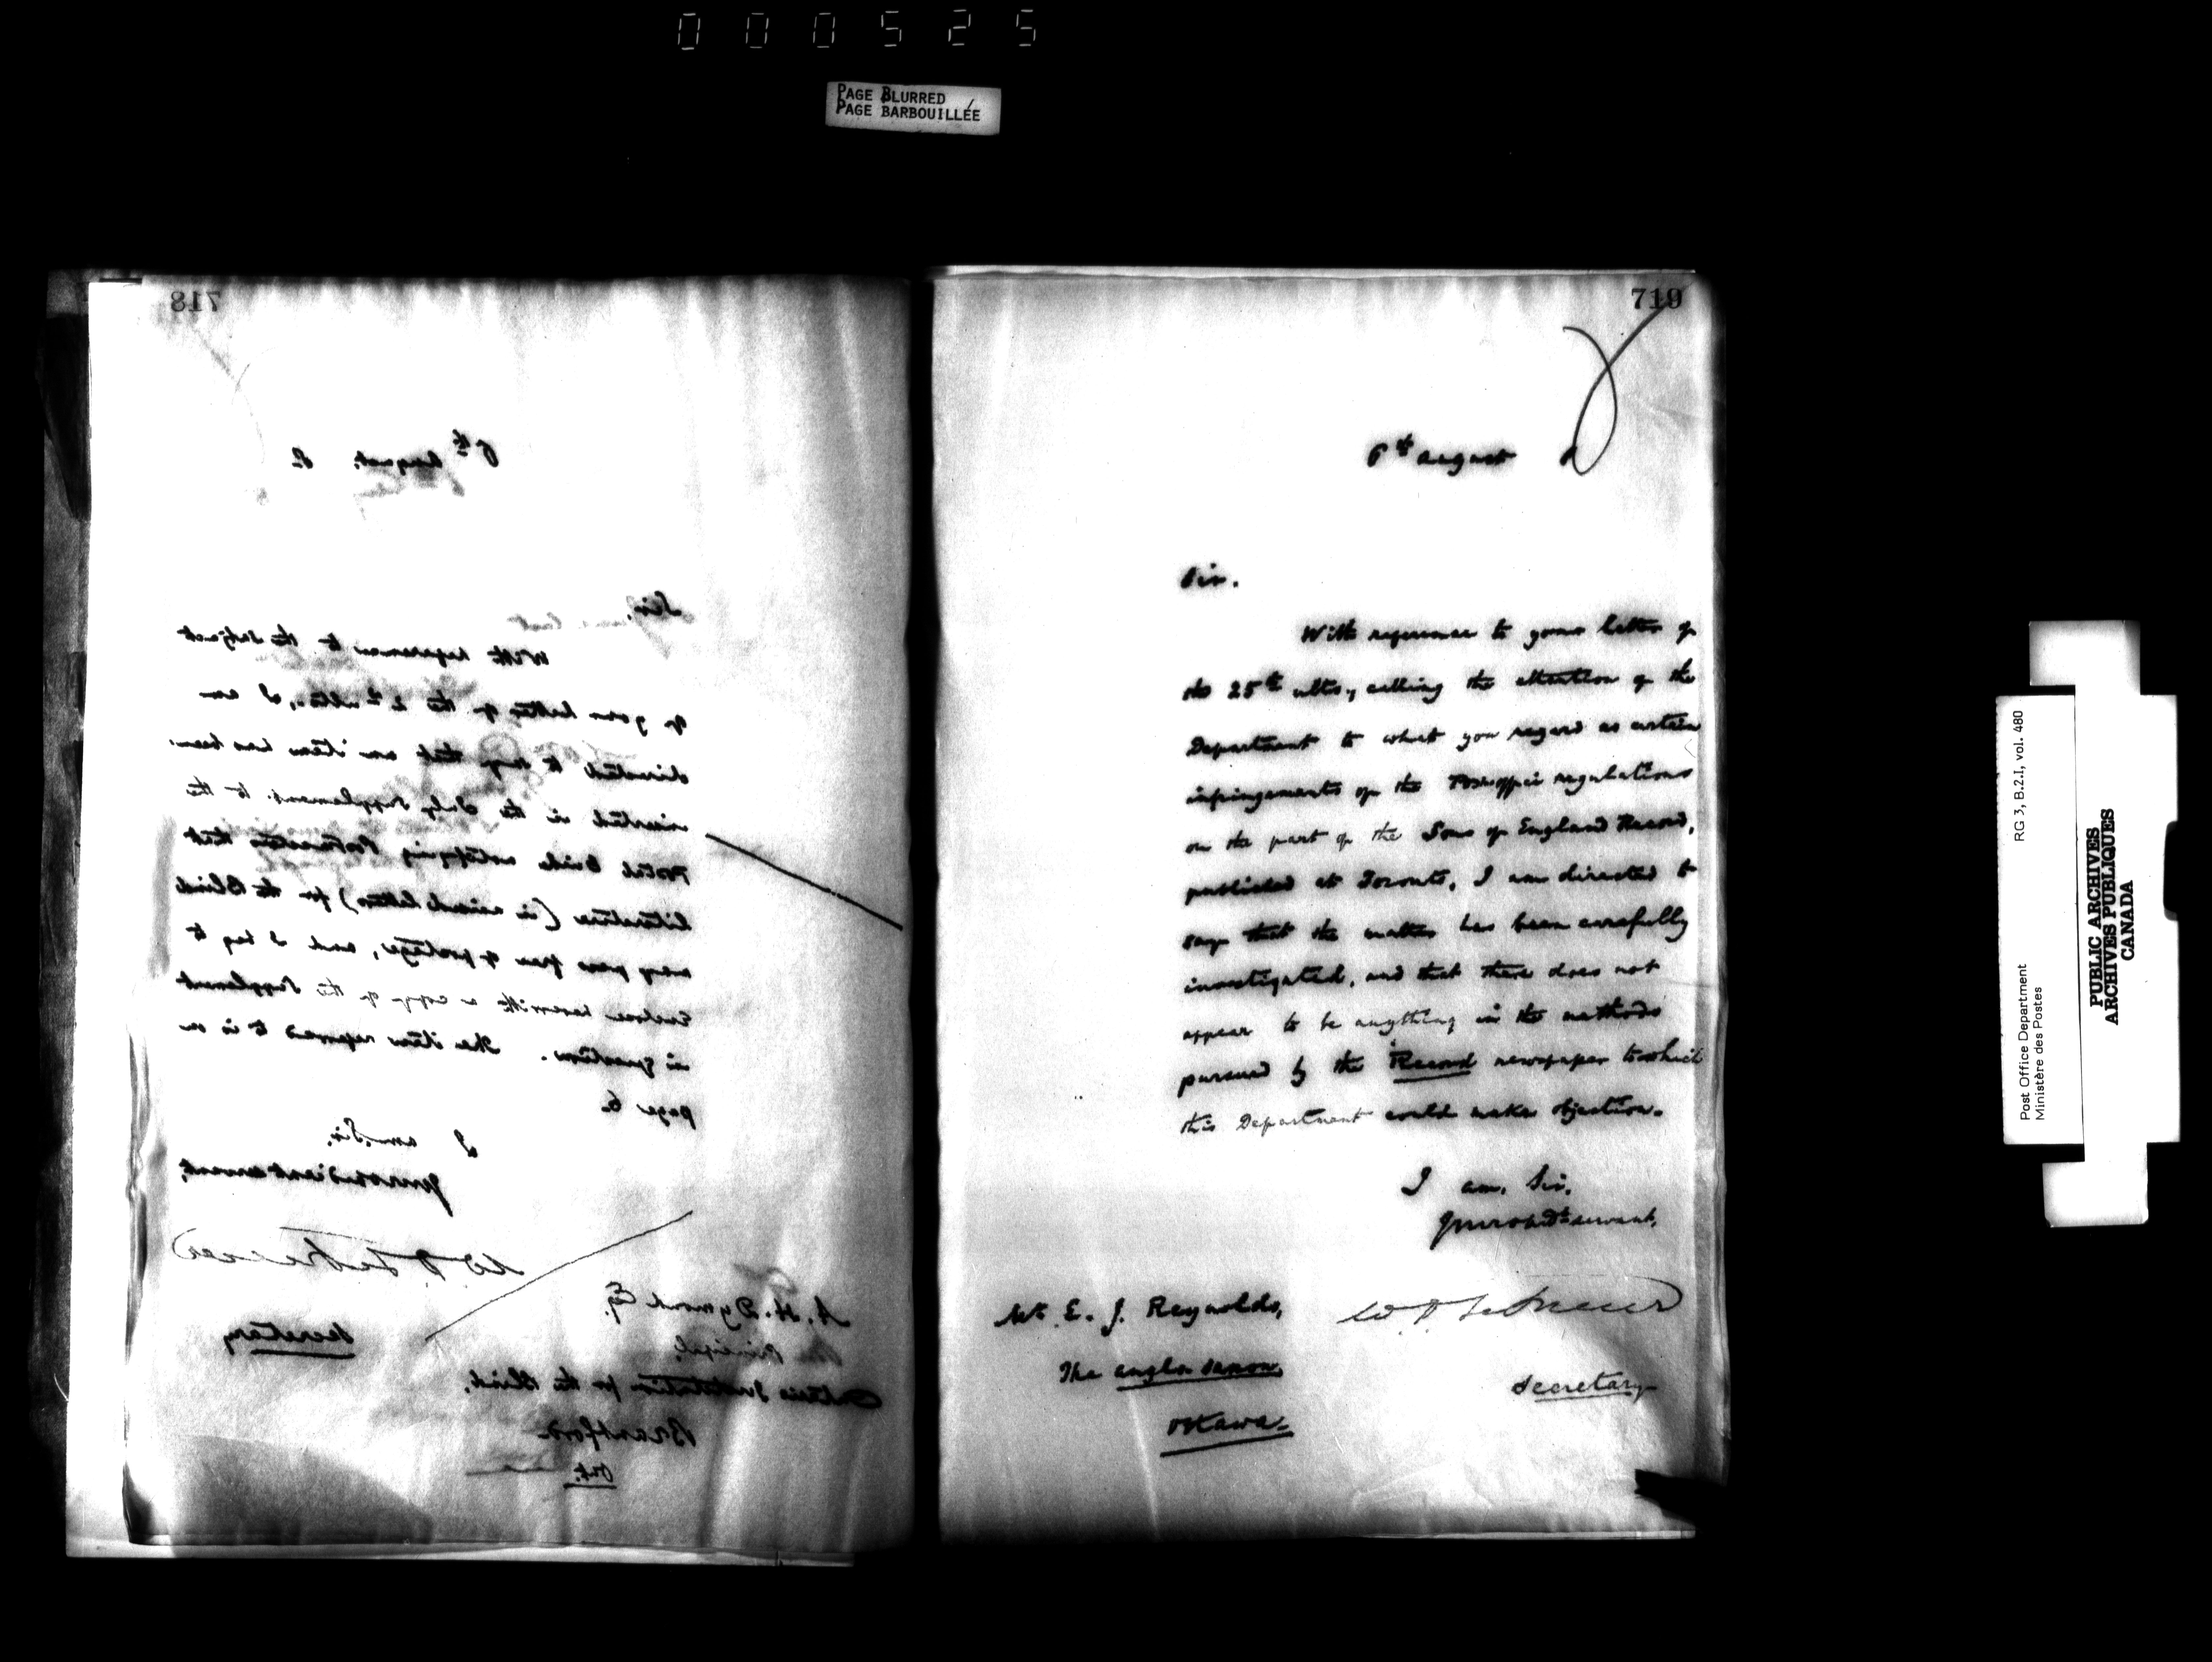 000525
PAGE BLURRED
PAGE BARBOUILLÉE
718
8th August.
Sir,
With reference to the subject
of your letter of the 2nd ulto., I am
directed to say that an item has been
inserted in the July Supplement to the
Postal Guide notifying Postmasters that
literature (in raised letters) for the Blind
may pass free of postage, and I beg to
enclose herewith a copy of the Supplement
in question. The item referred to is on
page 6.
I am, Sir,
Your obedient servant,
Secretary
A. H. Dymond Esq.
Principal,
Ontario Institution for the Blind,
Brantford
Ont.
719
6th August
Sir.
With reference to your letter of
the 25th ulto., calling the attention of the
Department to what you regard as certain
infringements of the Post office regulations
on the part of the Sons of England Record,
published at Toronto, I am directed to
say that the matter has been carefully
investigated, and that there does not
appear to be anything in the methods
pursued by the Record newspaper to which
this Department could make objection.
I am, Sir,
Your obdt servant,
Mr. E. J. Reynolds,
The anglo saxon,
Ottawa.
Secretary
Post Office Department RG 3, B.2.I, vol. 480
Ministère des Postes
PUBLIC ARCHIVES
ARCHIVES PUBLIQUES
CANADA